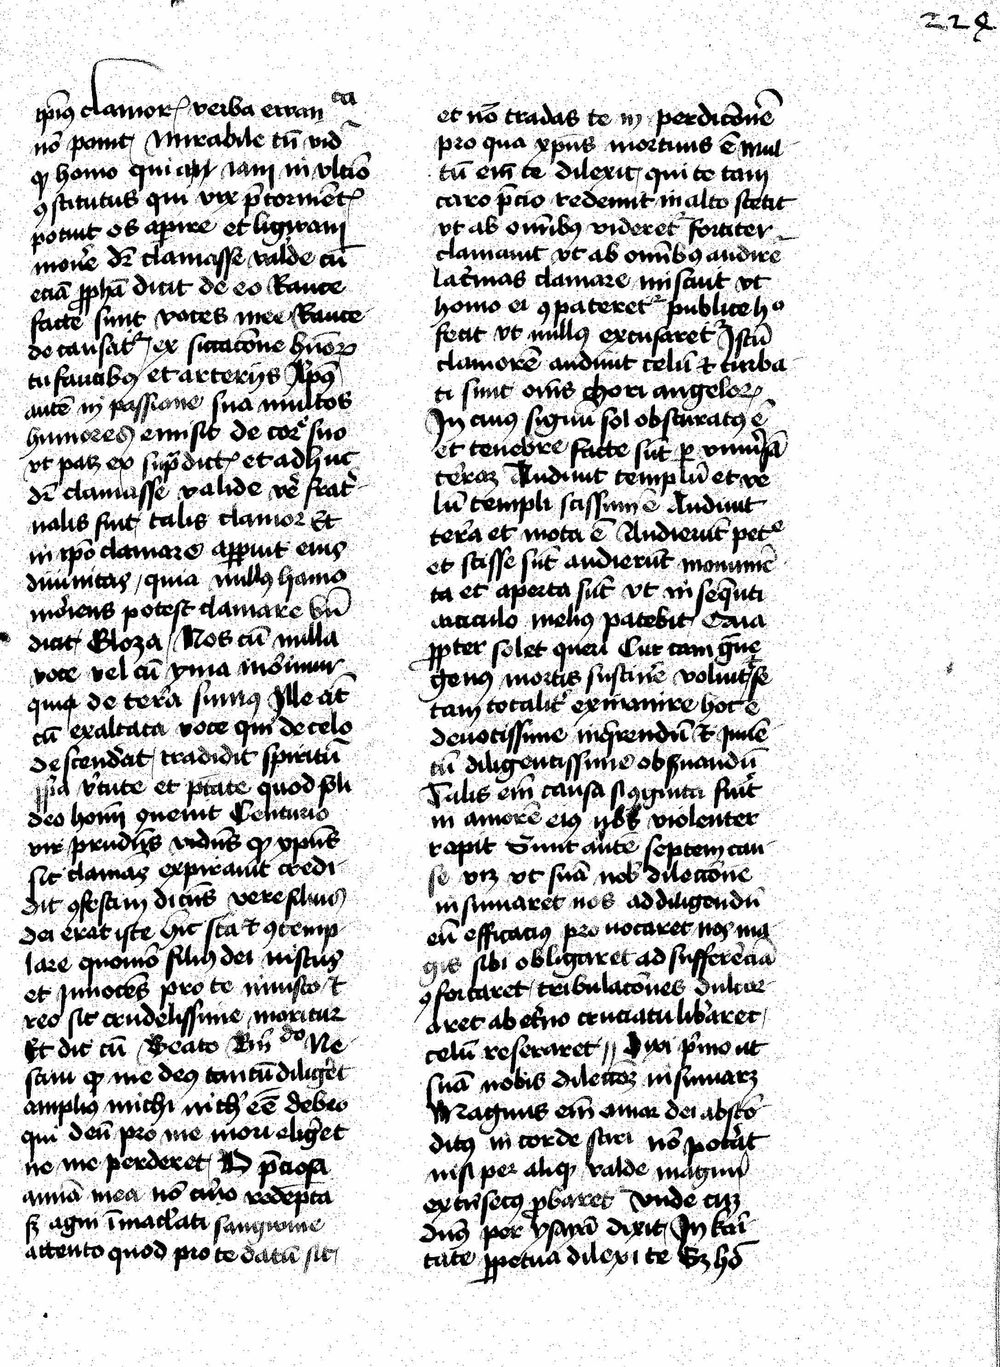 224
clamor verba ewan
no poniit Mirabile tn̄ vid
homo qui iam in vltio
ꝯstitutus qui vix p̄ torment
potuit os apire et ligwam
mouē dr̄ clamasse valde cū
eciā ꝓphā dicit de eo Rauce
facte sunt voces mee Rauce
de causatr ex siccacōne hūoꝝ
tu faucibꝯ et arterijs Xpūs
autē in passione sua multos
humores emisit de corꝰ suo
vt patꝫ ex sup̄dict et ad huc
dr̄ clamasse valide
nalis fuit talis clamor Et
in ipō clamare aꝑuit eius
diuinitas quia nullꝯ homo
moriens potest clamare vn̄
dicit Gloza Nos cū nulla
voce vel cū yma morimur
quia de terra sumꝯ Ille at̄
cū exaltata voce qui de celo
descendat tradidit spiritū
ꝓpa v̓tute et ptāte quod soli
deo homī ꝯuenit Centurio
vir prudēs vidēs ꝙ xpūs
sic clamas expirauit credi
dit ꝯfestim dicēs vere filius
dei erat iste hic sta et ꝯtemp
lare quomō filiꝯ dei iustus
et Innocēs pro te iniusto et
reo sic crudelissime moritur
Et dic cū Beato Bn̄ do Ne
sciui ꝙ me deꝯ tantū diligeret
ampliꝯ michi nich̓ eē debeo
qui deū pro me mori eliget
ne me perderet D p̄ciosa
anīa mea nō auro redēpta
sꝫ agni īmaclati sangwine
attento quod pro te datū sit
et nō tradas te in perdicōnē
pro qua xpūs mortuus ē Mul
tū em̄ te dilexit qui te tam
caro p̄cio redemit in alto stetit
vt ab omībꝯ videret fortiter
clamauit vt ab omībꝯ audire
lacrimas clamare miscuit vt
homo ei ꝯpateret publice hᵒ
fecit vt nullꝯ excusaret Istū
clamorē audiuit celū et turba
ti sunt om̄s chori angeloꝝ
In cuiꝯ signū sol obscuratꝯ ē
et tenebre facte sūt ꝑ vniu̓sā
terraꝫ Audiuit templū et ve
lū templi scissum ē Audiuit
terra et mota ē Audierūt petᵉ
et scisse sūt audierūt monumē
ta et aperta sūt vt in seq̄nti
articulo melius patebit Quia
ꝓpter solet queri Cur tam
genꝯ mortis sustinē voluit se
tam totalit̓ exinanire hoc ē
deuotissime inq̓rendū et inuē
tū diligentissime obs̓uandū
Talis em̄ causa si ꝯgnita fuit
in amorē eiꝯ violenter
rapit Sunt aute septem cau
se vꝫ vt suā nob̓ dilecōne
insinuaret nos ad diligendū
eū efficaciꝯ prouocaret nos ma
gis sibi obligaret ad sufferēciā
ꝯfortaret tribulacōnes dulcor
aret ab et̓no cruciatu lib̓aret
celū reseraret Dixi p̓mo ut
suā nobis dilecōꝫ insinuarꝫ
Magnus em̄ amor dei abscō
ditꝯ in corde sciri nō poterat
nisi per aliqꝯ valde magnū
ext̓nsecꝯ ꝓbaret Vnde
dn̄s per ysayā dixit In kari
tate ꝑpetua dilexi te Sꝫ hō